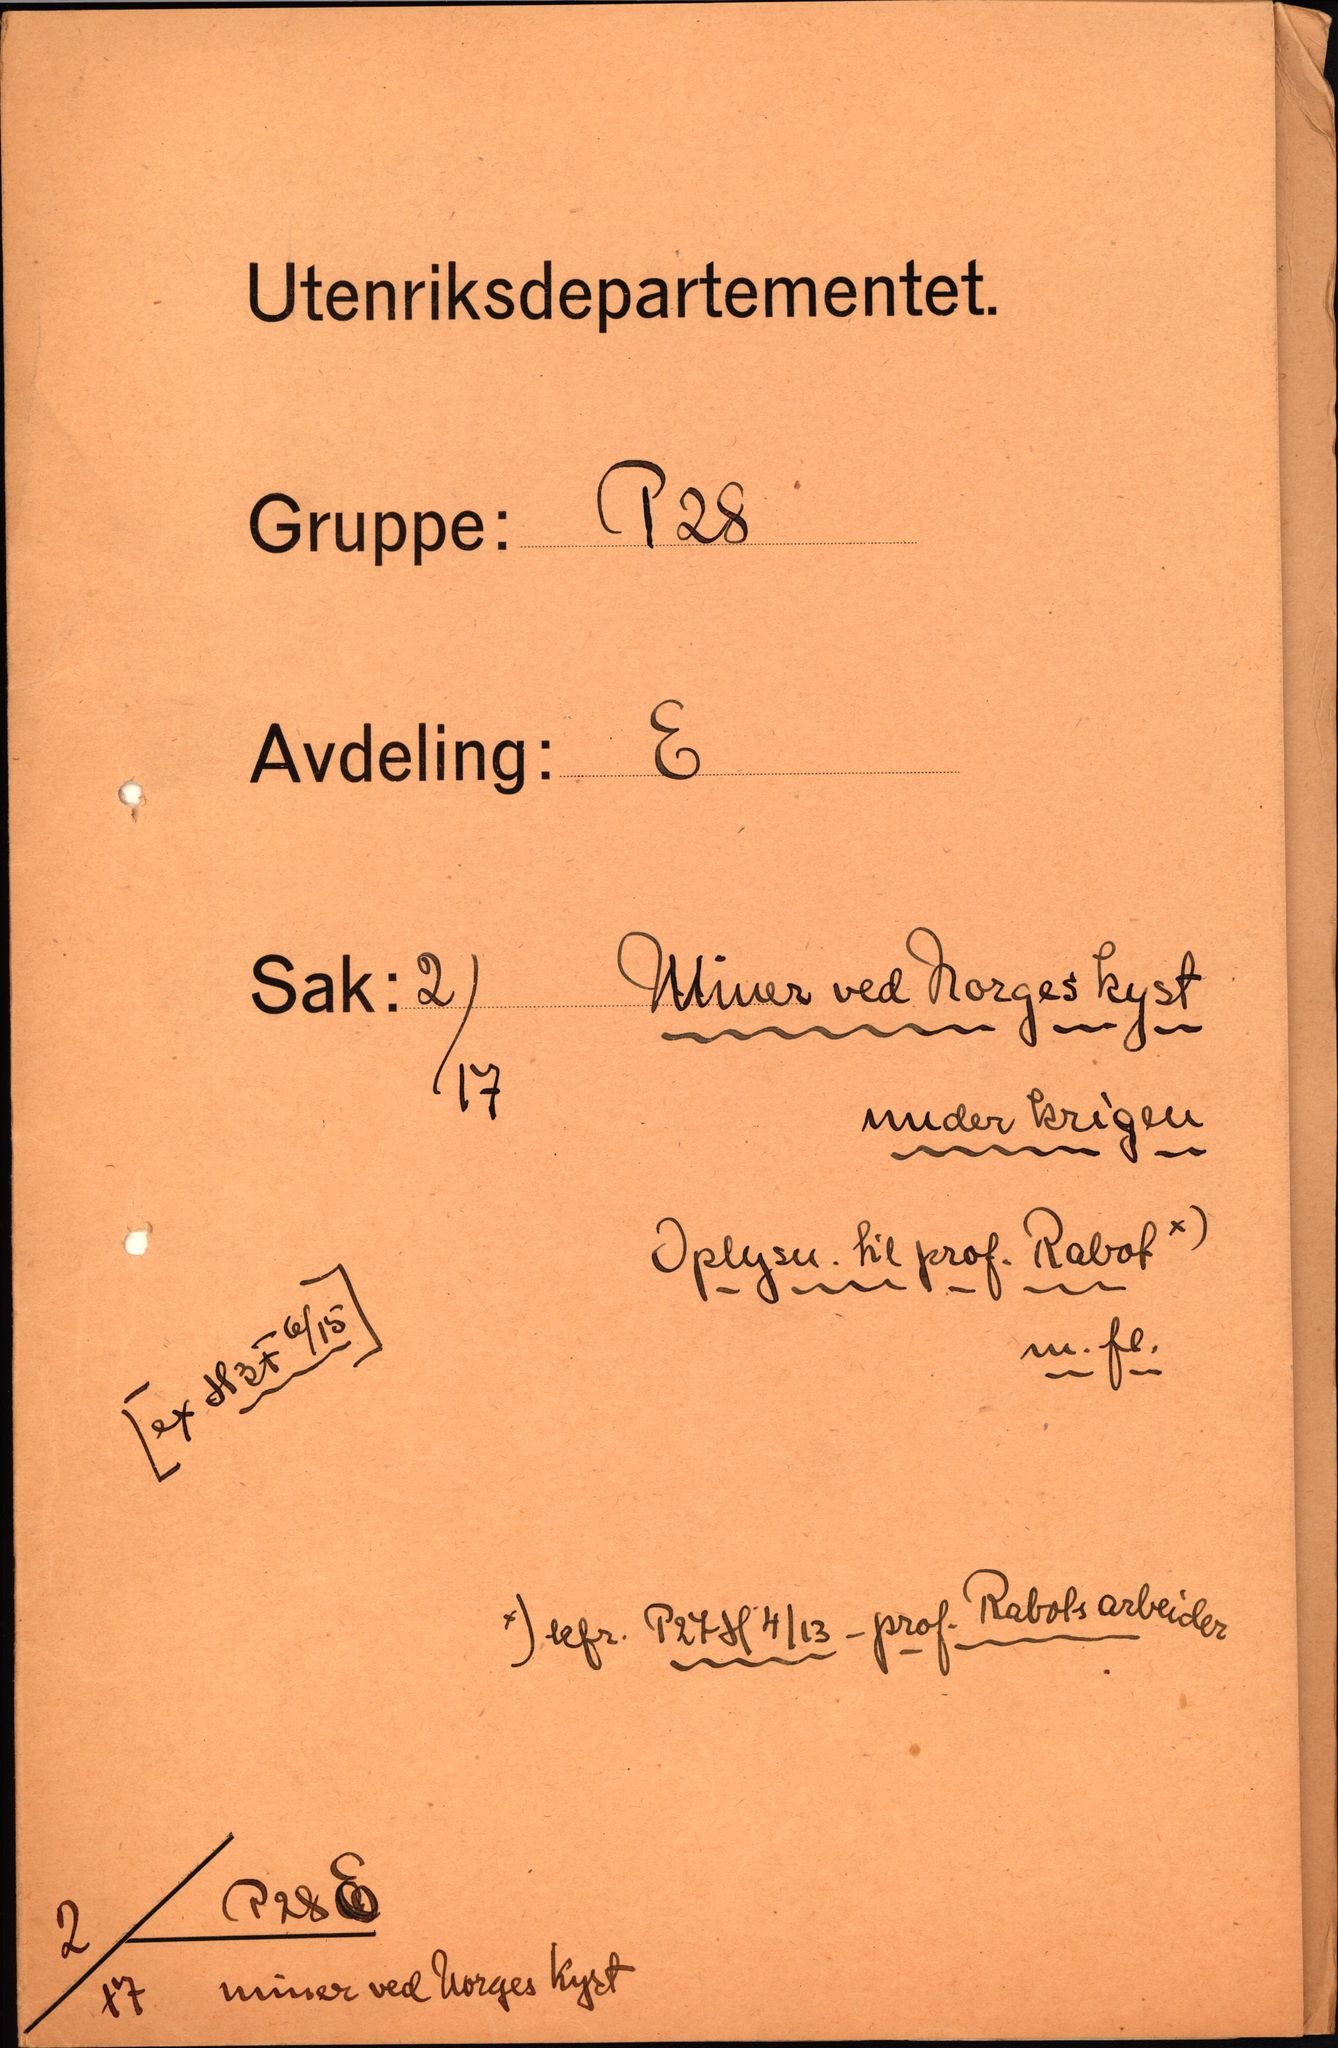 Utenriksdepartementet.
Gruppe: P 28
Avdeling: E
Sak: 2/17 Miner ved Norges kyst
under krigen
Oplysn. til prof. Rabot x)
m. fl.
[ex H 3 6/15]
x) kfr. P27H 4/13 - prof. Rabots arbeider
2/17 P 28 E
miner ved Norges Kyst